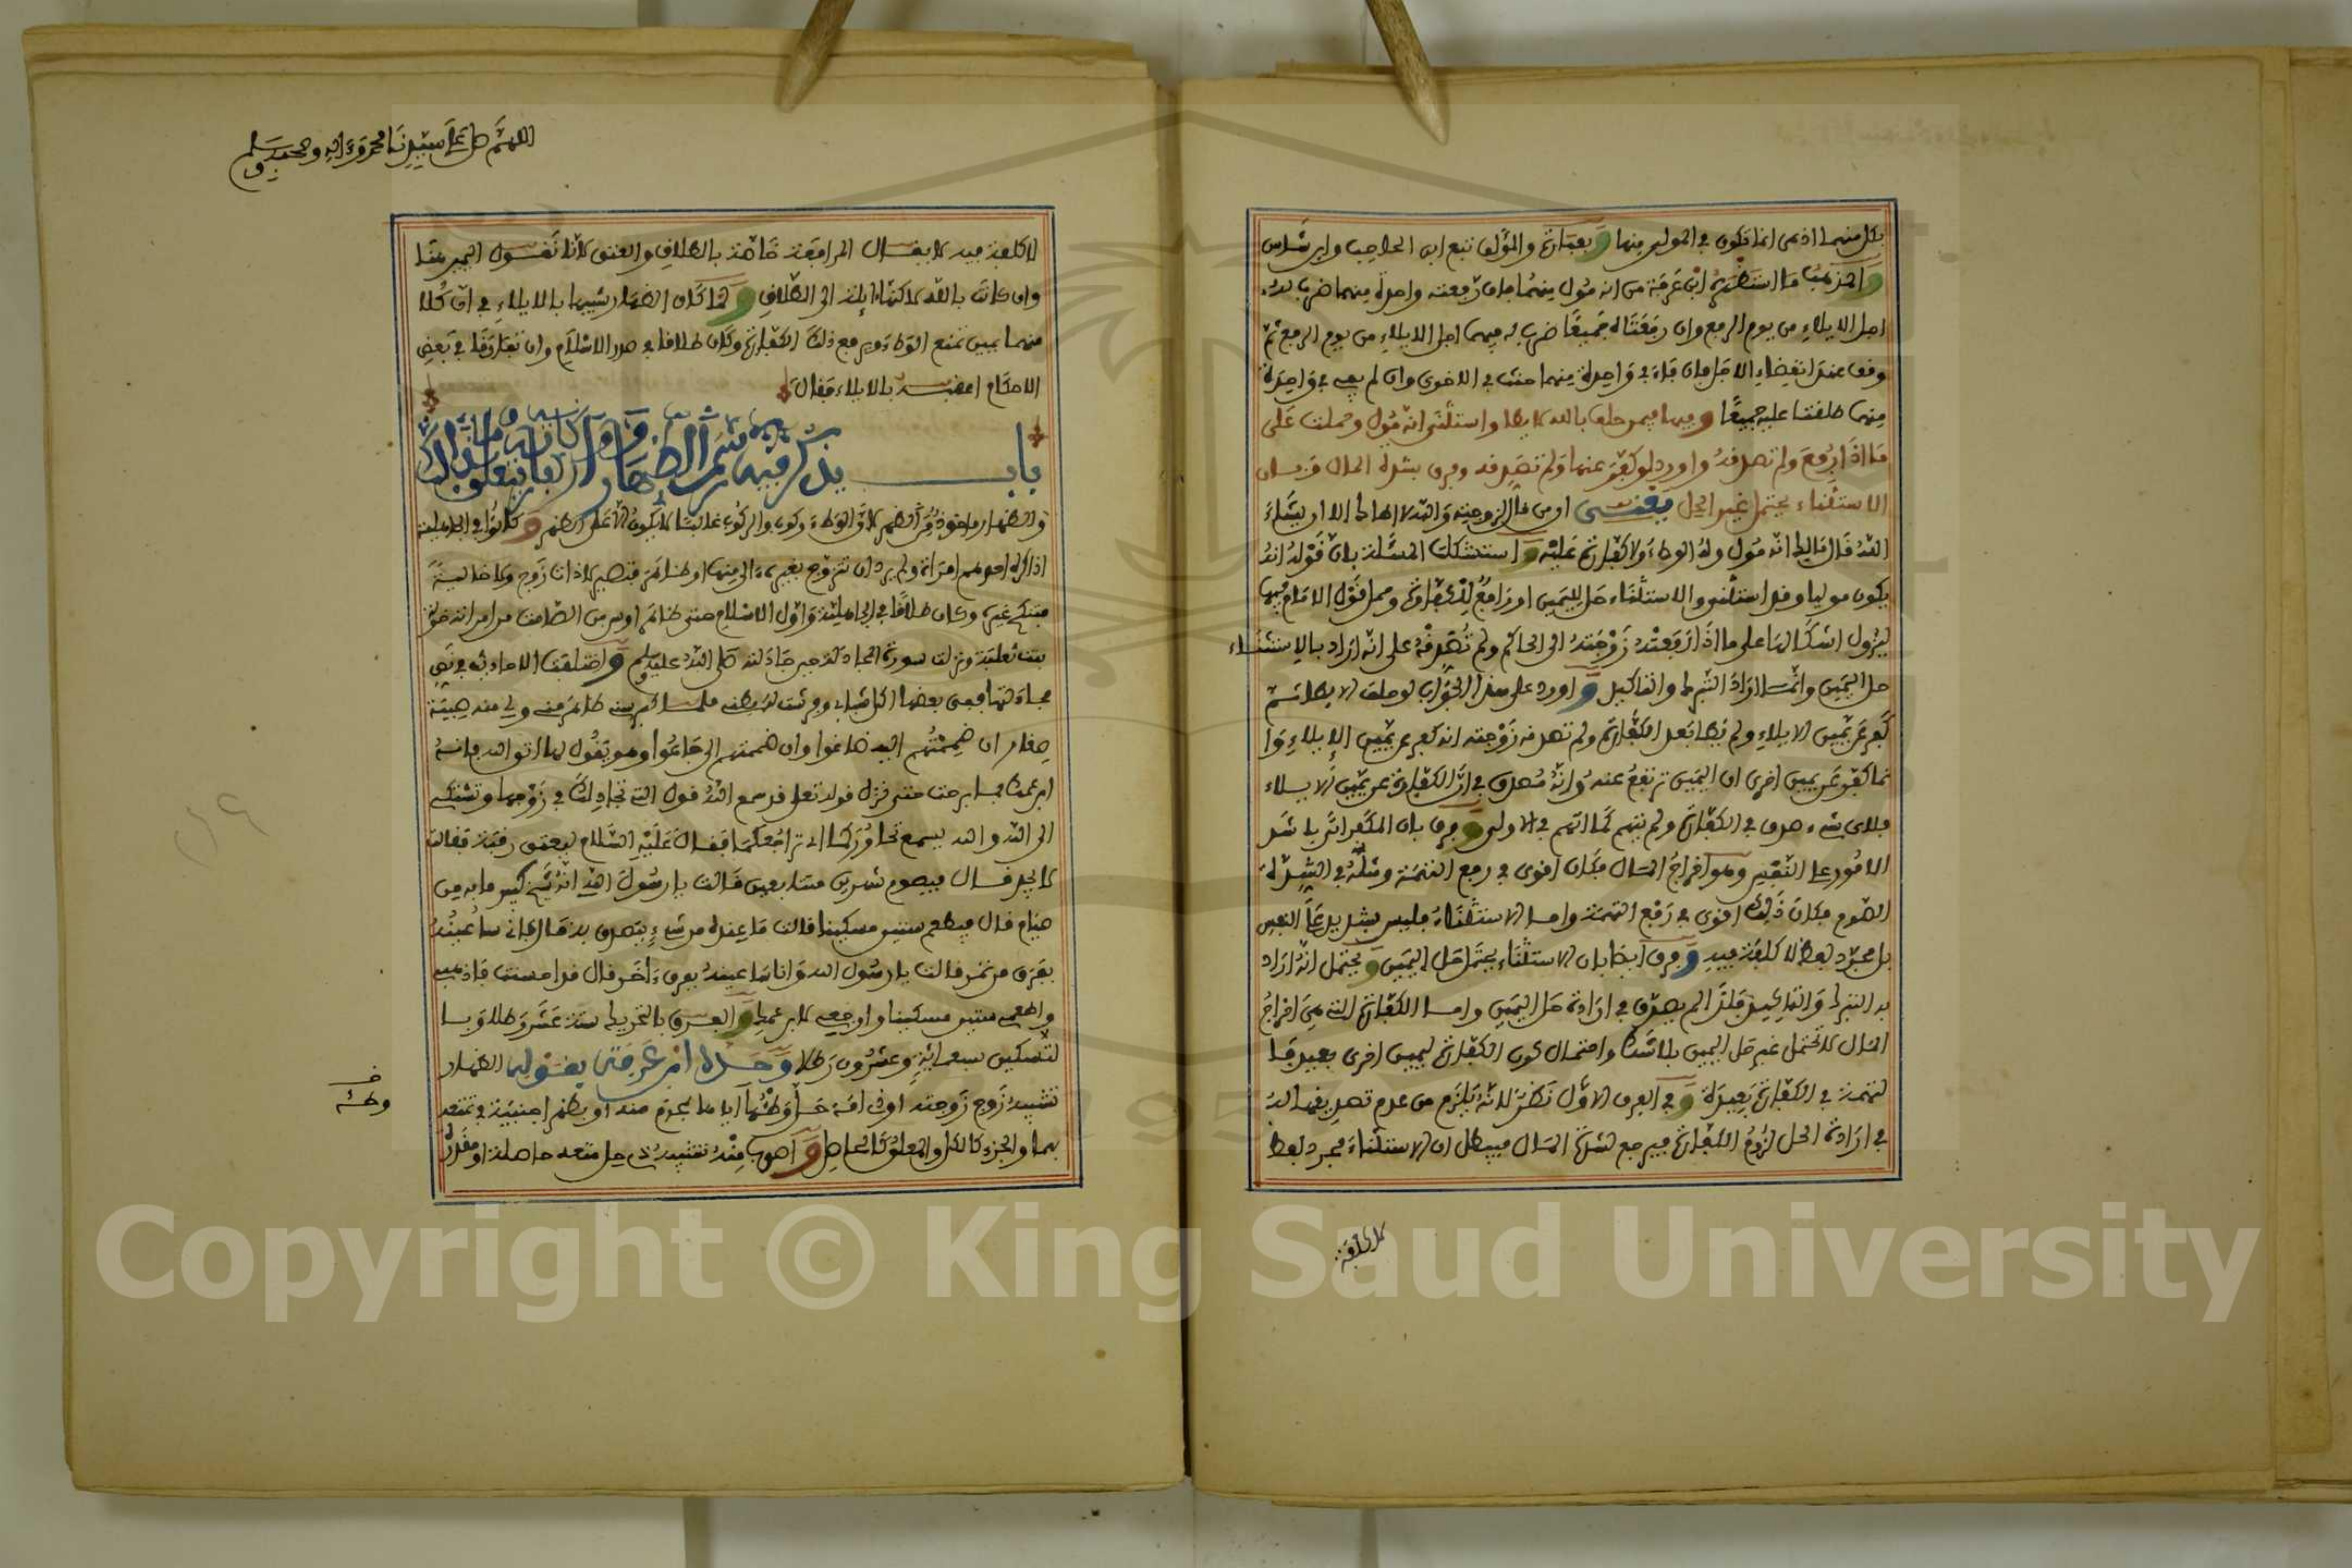 بكل منهما اذ هي انما تكون في المولي منها وبعبارة والمؤلف تبع ابن الحاجب وابن شاس
والمذهب ما استظهره ابن عرفة من انه مول منهما فان رفعته واحدة منهما ضرب له
اجل الايلاء من يوم الرفع وان رفعتاه جميعا ضرب له فيهما اجل الايلاء من يوم الرفع ثم
وقف عند انقضاء الاجل فان فاء في واحدة منهما حنث في الاخرى وان لم يف في واحدة
منهما طلقتا عليه جميعا وفيها فيمن حلف بالله لا يطا واستثنى انه مول وحملت على
ما اذا رفع ولم تصدقه واورد لو كفر عنها ولم تصدقه وفرق بشدة المال وبان
الاستثناء يحتمل غير الحل يعني ان من قال لزوجته والله لا اطا الا ان يشاء
الله قال مالك انه مول وله الوطء ولا كفارة عليه واستشكلت المسئلة بان قوله انه
يكون موليا وقد استثنى والاستثناء حل لليمين او رافع للكفارة وحمل قول الامام فيها
ليزول اشكالها على ما اذا رفعته زوجته الى الحاكم ولم تصدقه على انه اراد بالاستثناء
حل اليمين وانما اراد التبرك والتاكيد واورد على هذا الجواب لو حلف لا يطا ثم
كفر عن يمين الايلاء ولم يطا بعد الكفارة ولم تصدقه زوجته انه كفر عن يمين الايلاء وا
نما كفر عن يمين اخرى ان اليمين ترتفع عنه وانه مصدق في ان الكفارة عن يمين الايلاء
فلاي شيء صدق في الكفارة ولم يتهم كما اتهم في الاولى وفرق بان المكفر اتى باشد
الامور على النفس وهو اخراج المال فكان اقوى في رفع التهمة ومثله في الشدة
الصوم فكان ذلك اقوى في رفع التهمة واما الاستثناء فليس بشديد على النفس
بل مجرد لفظ لا كلفة فيه وفرق ايضا بان الاستثناء يحتمل حل اليمين ويحتمل انه اراد
به التبرك والتاكيد فلذا لم يصدق في ارادة حل اليمين واما الكفارة التي هي اخراج
المال لا تحتمل غير حل اليمين بلا شك واحتمال كون الكفارة ليمين اخرى بعيد فا
لتهمة في الكفارة بعيدة وفي الفرق الاول نظر لانه يلزم من عدم تصديقها له
في ارادة الحل لزوم الكفارة فيرجع لشدة المال فيبطل ان الاستثناء مجرد لفظ
لا كلفة
اللهم صل على سيدنا محمد وءاله وصحبه وسلم
لا كلفة فيه لا يقال المرافعة خاصة بالطلاق والعتق لانا نقول اليمين هنا
وان كانت بالله لاكنها ايلة الى الطلاق ولما كان الظهار شبيها بالايلاء في ان كلا
منهما يمين تمنع الوطء ويرفع ذلك الكفارة وكان طلاقا في صدر الاسلام وان تفارقا في بعض
الاحكام اعقبه بالايلاء فقال
باب يذكر فيه الظهار واركانه وما يتعلق بذالك
والظهار ماخوذ من الظهر لان الوطء ركوب والركوب غالبا لا يكون الا على الظهر وكانوا في الجاهلية
اذا كره احدهم امراة ولم يرد ان تتزوج بغيره ءالى منها او ظاهر فتصير لا ذات زوج ولا خالية
فتنكح غيره وكان طلاقا في الجاهلية واول الاسلام حتى ظاهر اوس بن الصامت من امراته خولة
بنت ثعلبة ونزلت سورة المجادلة حين جادلته صلى الله عليه وسلم واختلفت الاحاديث في نص
مجادلتها ففي بعضها اكل شبابي وفرشت له بطني فلما كبر سني ظاهر مني ولي منه صبية
صغار ان ضممتهم اليه ضاعوا وان ضممتهم الي جاعوا وهو يقول لها اتق الله فانه
ابن عمك فما برحت حتى نزل قوله تعلى قد سمع الله قول التي تجادلك في زوجها وتشتكي
الى الله والله يسمع تحاوركما اي تراجعكما فقال عليه السلام ليعتق رقبة فقالت
لا يجد قال فيصوم شهرين متتابعين قالت يا رسول الله انه شيخ كبير ما به من
صيام قال فيطعم ستين مسكينا قالت ما عنده من شيء يتصدق به قال فاني ساعينه
بفرق من تمر قالت يا رسول الله وانا ساعينه بفرق ءاخر قال قد احسنت فاذهبي
واطعمي ستين مسكينا وارجعي لابن عمك والفرق بالتحريك ستة عشر رطلا وبا
لتسكين سبعمائة وعشرون رطلا وحده ابن عرفة بقوله الظهار
تشبيه زوج زوجته او ذي امة حل وطئه اياها بمحرم منه او بظهر اجنبية في تمتعه
بهما والجزء كالكل والمعلق كالحاصل واصوب منه تشبيه ذي حل متعة حاصلة او مقدرة
خ
وطئه
Copyright © King Saud University
1957